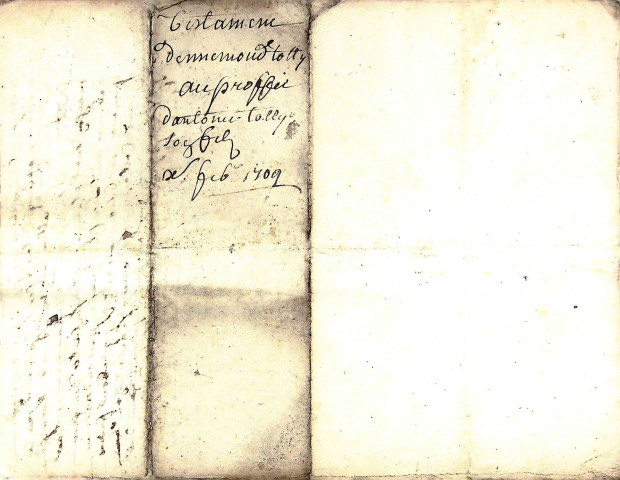 Testament
dennemond tolly
au proffit
d'antoine tolly
son filz
febr. 1709